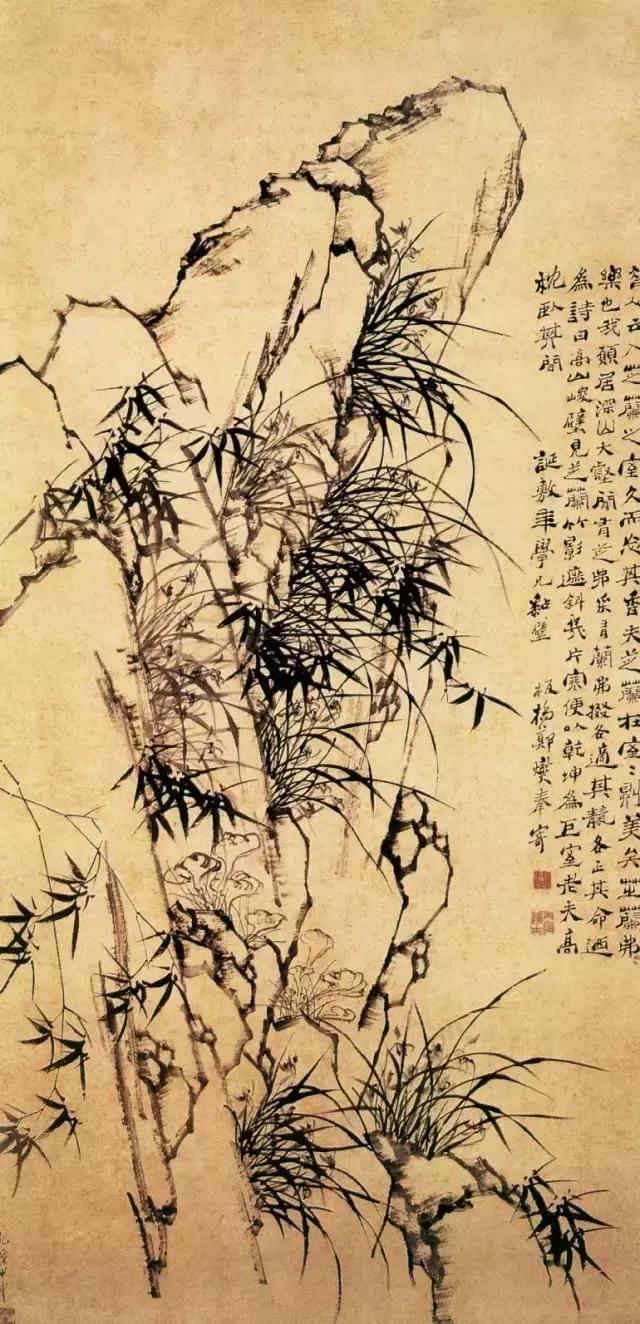 昔人云入芝蘭之室久而忘其香夫芝蘭在室〻則美矣芝蘭弗
樂也我願居深山大壑間有芝弗采有蘭弗掇各適其各正其命迺
為詩曰高山峻壁見芝蘭竹影遮斜幾片寒便以乾坤為巨室老夫高
枕卧其間
誕敷年學兄黏壁
板橋鄭燮奉寄